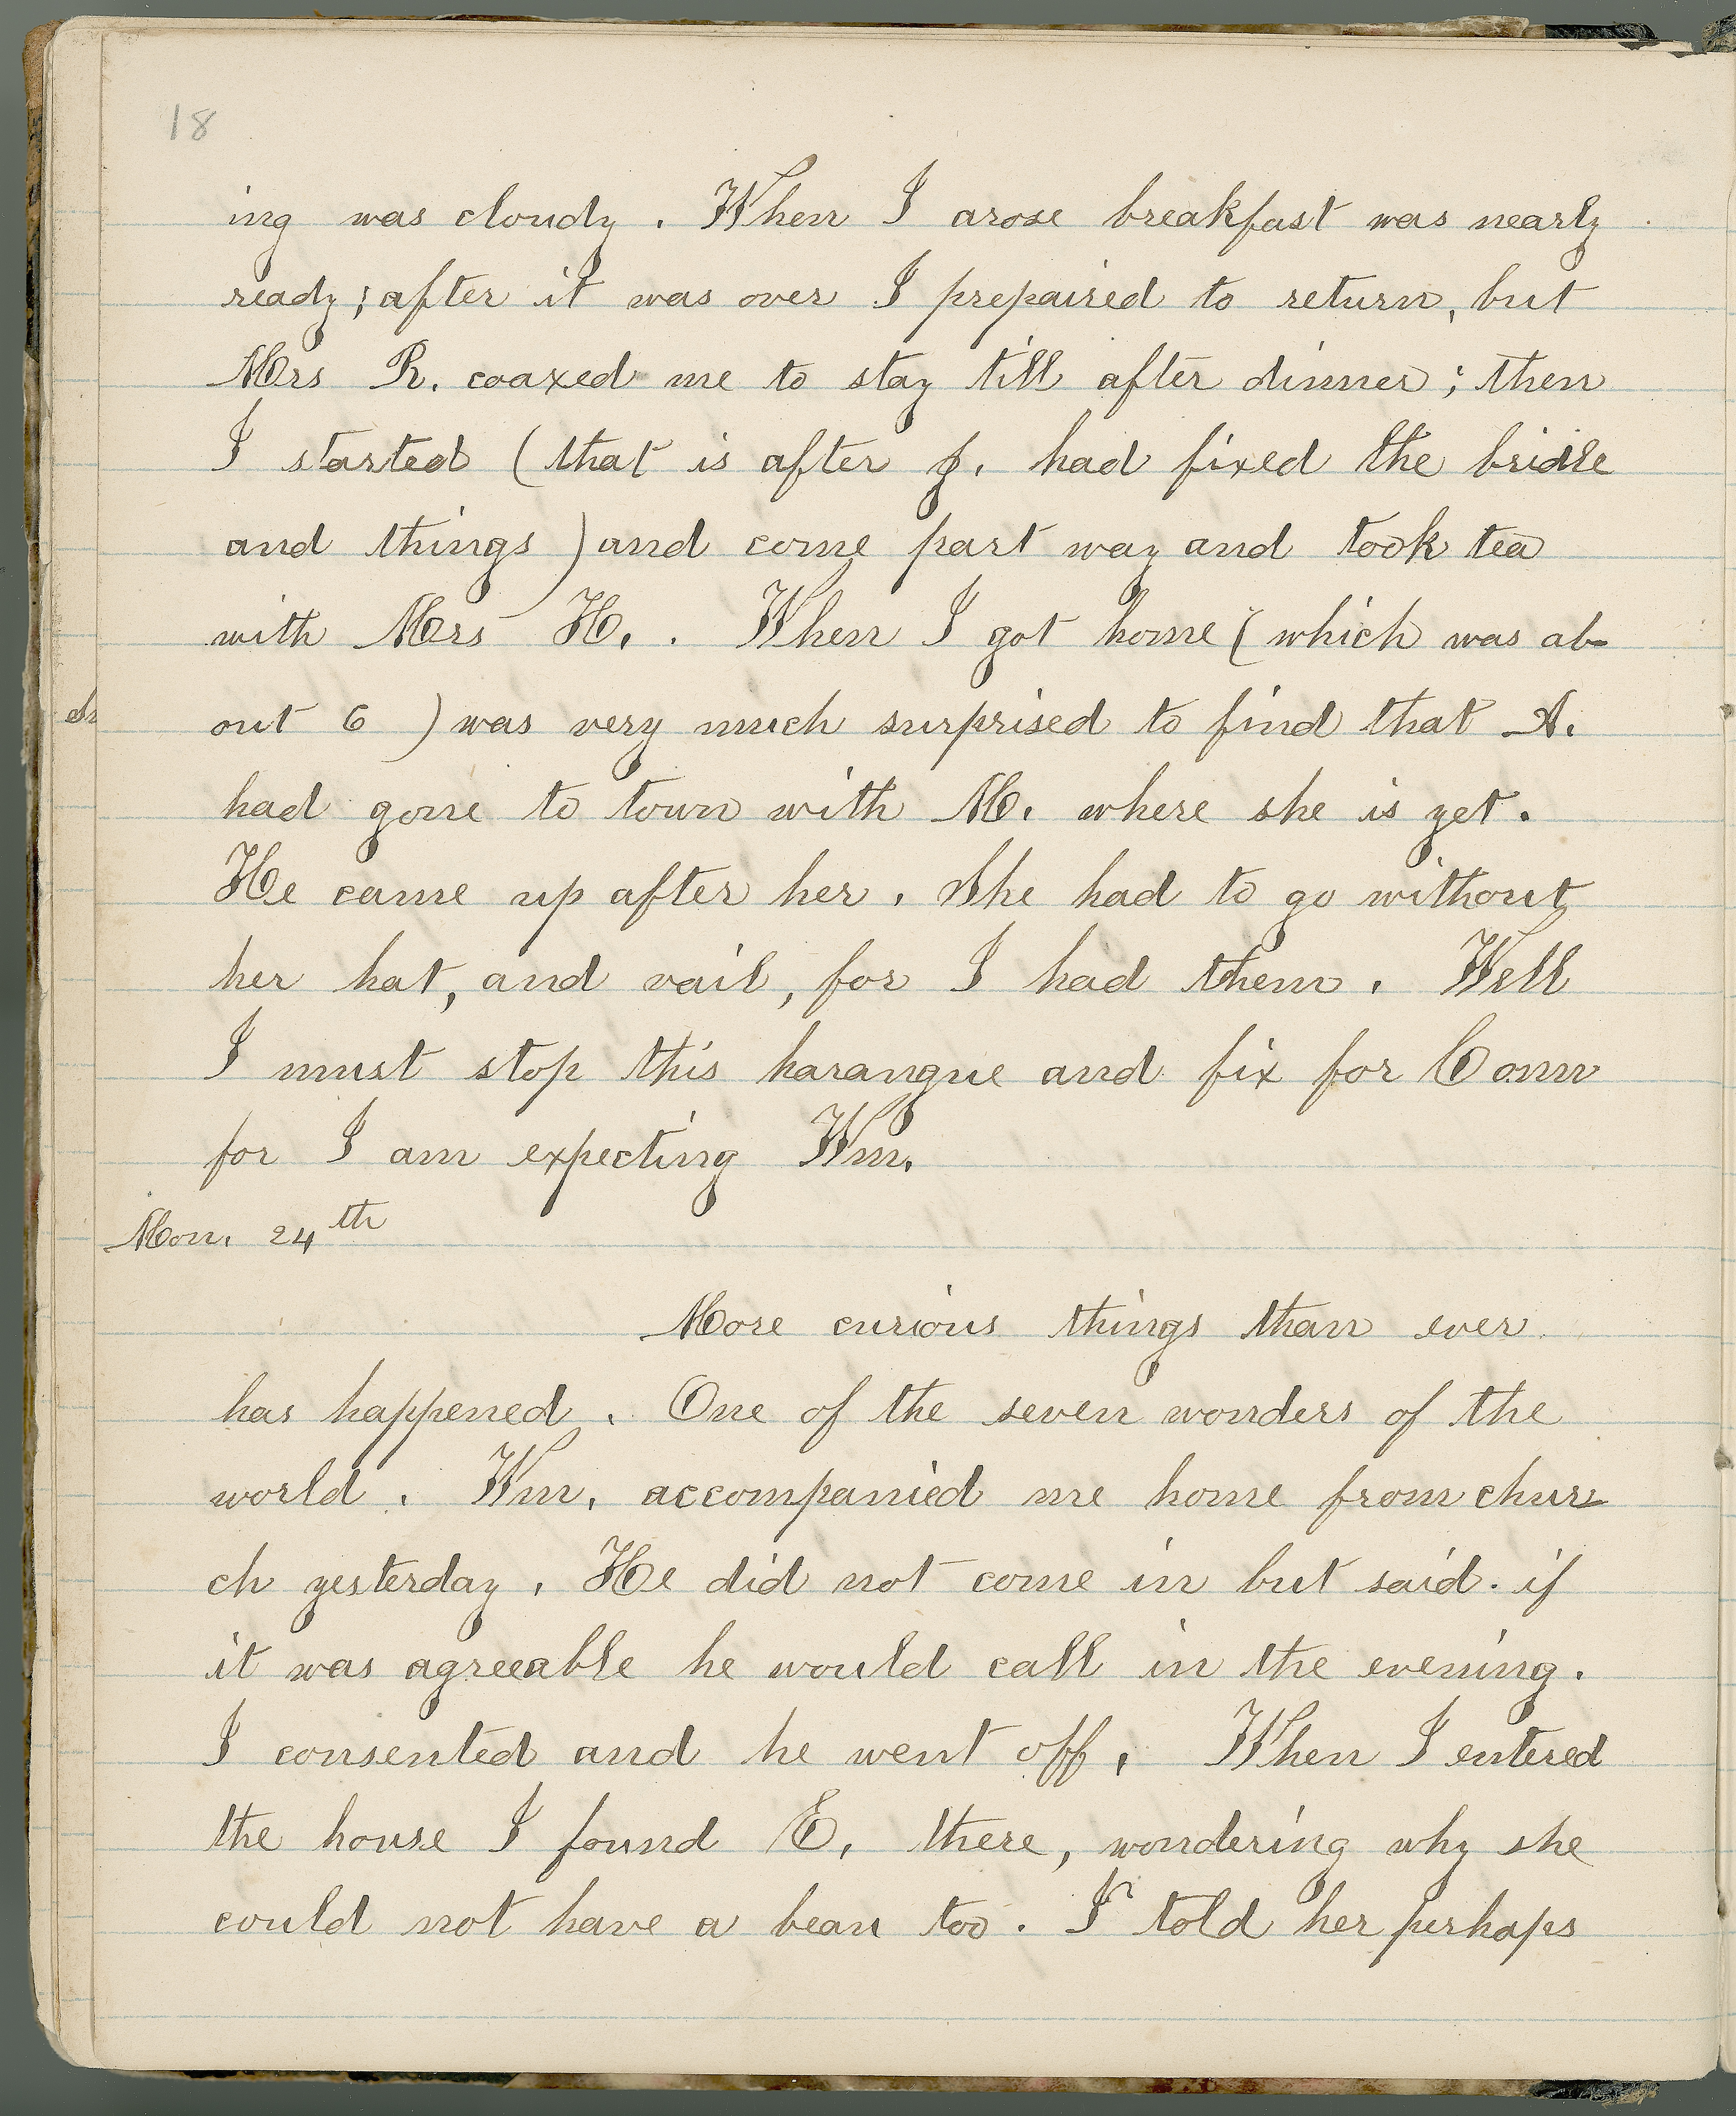 18
ing was cloudy. When I arose breakfast was nearly
ready; after it was over I prepaired to return, but
Mrs R. coaxed me to stay till after dinner; then
I started (that is after J. had fixed the bridle
and things) and come part way and took tea
with Mrs H.. When I got home (which was ab-
out 6 ) was very much surprised to find that A.
had gone to town with M. where she is yet.
He came up after her. She had to go without
her hat, and vail, for I had them. Well
I must stop this harangue and fix for Com
for I am expecting Wm.
Mon. 24th
More curious things than ever
has happened. One of the seven wonders of the
world. Wm. accompanied me home from chur-
ch yesterday. He did not come in but said if
it was agreeable he would call in the evening.
I consented and he went off. When I entered
the house I found E. there, wondering why she
could not have a beau too. I told her perhaps